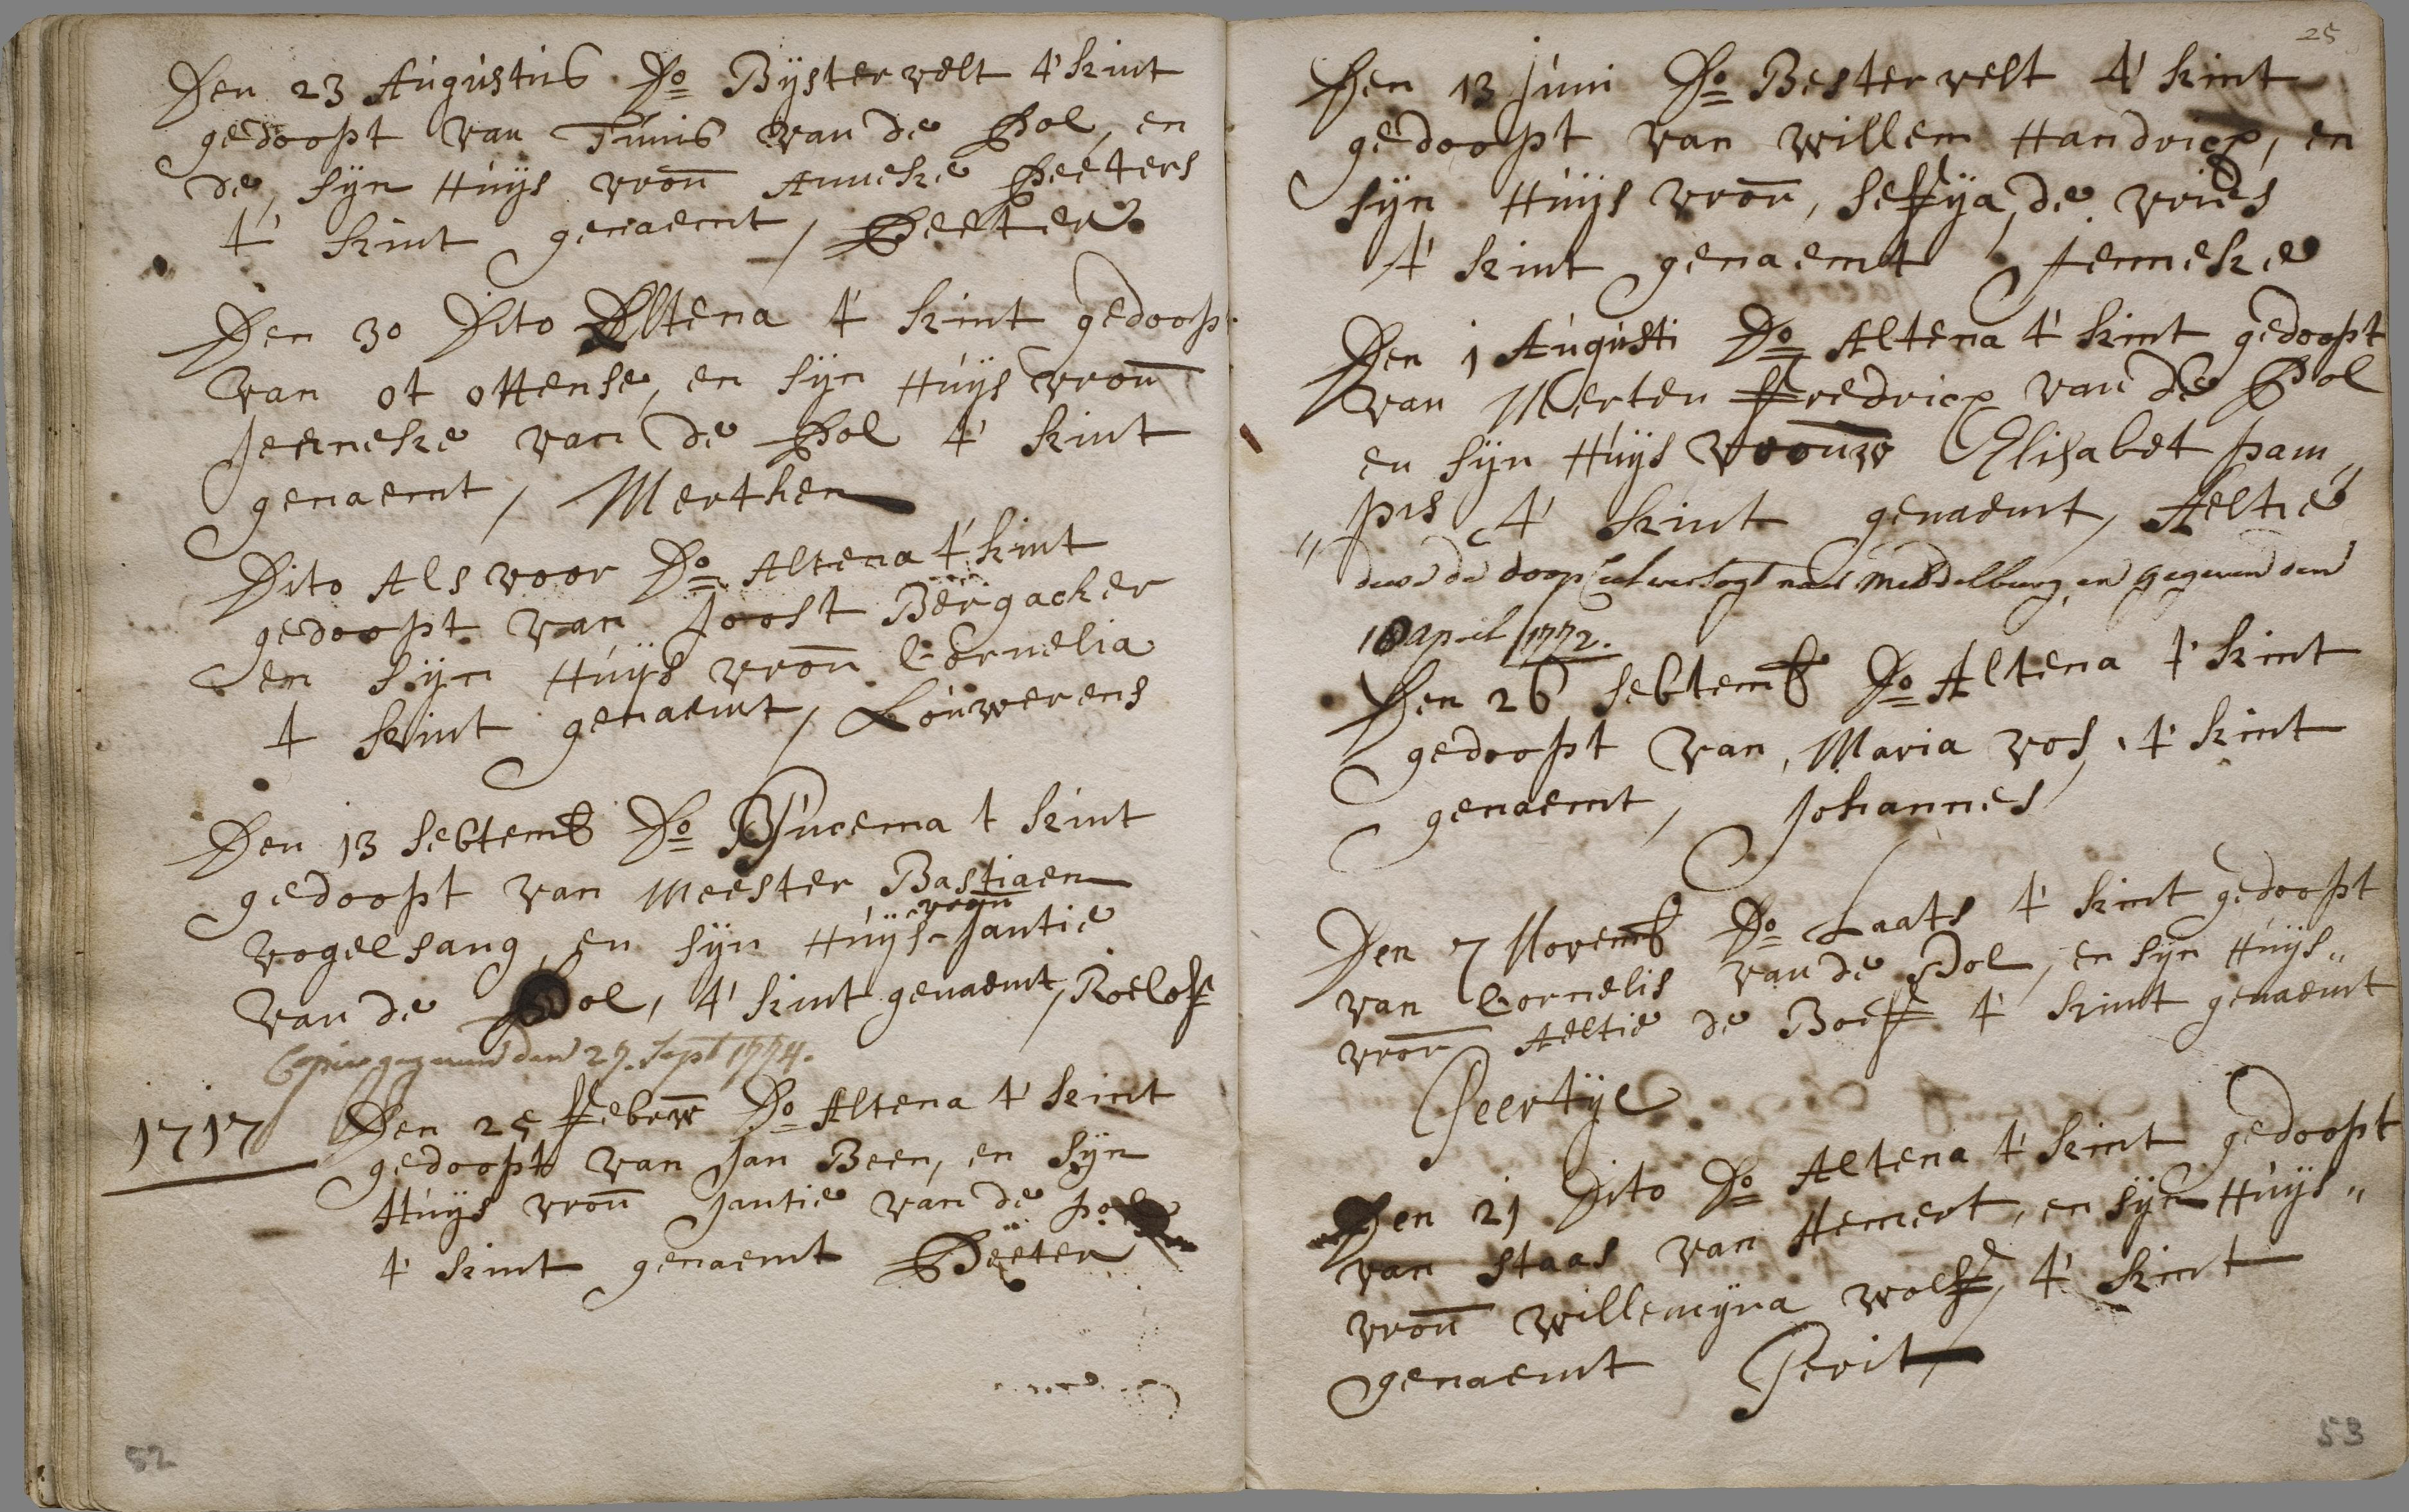 Den 23 Augustus Do Bijstervelt t' kint
gedoopt van Tunis van de Pol, en
de, sijn Huijs vrou Anneke Peeters
t' kint genaemt, Peeter
Den 30 Dito Altena t' kint gedoop
van ot ottense, en sijn Huijs vrou
Jenneke van de Pol t' kint
genaemt, Merthen
Dito Als voor Do Altena t' kint
gedoopt van Joost Bergacker
en sijn Huijs vrou Cornelia
t kint genaemt, Louwerens
Den 13 Sebtemb Do Bucema t kint
gedoopt van Meester Bastiaen
vrou
vogelsang, en sijn Huijs Jantie
van de Pol, t' kint genaemt, Roelof
Copie gegeven den 27. Sept 1774.
1717 Den 25 Febrw Do Altena t' kint
gedoopt van Jan Been, en sijn
Huijs vrou Jantie van de pol
t' kint genaemt Peeter
52
25
Den 13 Juni Do Bestervelt t' kint
gedoopt van Willem Handricx, en
sijn Huijs vrou, Seffija de vries
t' kint genaemt Jenneke
Den 1 Augusti Do Altena t' kint gedoopt
van Merten Fredricx van de Pol
en sijn Huijs vrouw Elisabet pam„
„pis t' kint genaemt, Aeltie
dese de doopceel versogt naer Middelburg, en gegeven den
10 april 1772.
Den 26 Sebtemb Do Altena t' kint
gedoopt van, Maria vos, t' kint
genaemt, Johannes
Den 7 Novemb Do Laats t' kint gedoopt
van Cornelis van de Pol, en sijn Huijs„
vrou Aeltie de Boef t' kint genaemt
Geertije
Den 21 Dito Do Altena t' kint gedoopt
van Staas van Hemert, en sijn Huijs„
vrou Willemijna Wolf, t' kint
genaemt Gerit
53